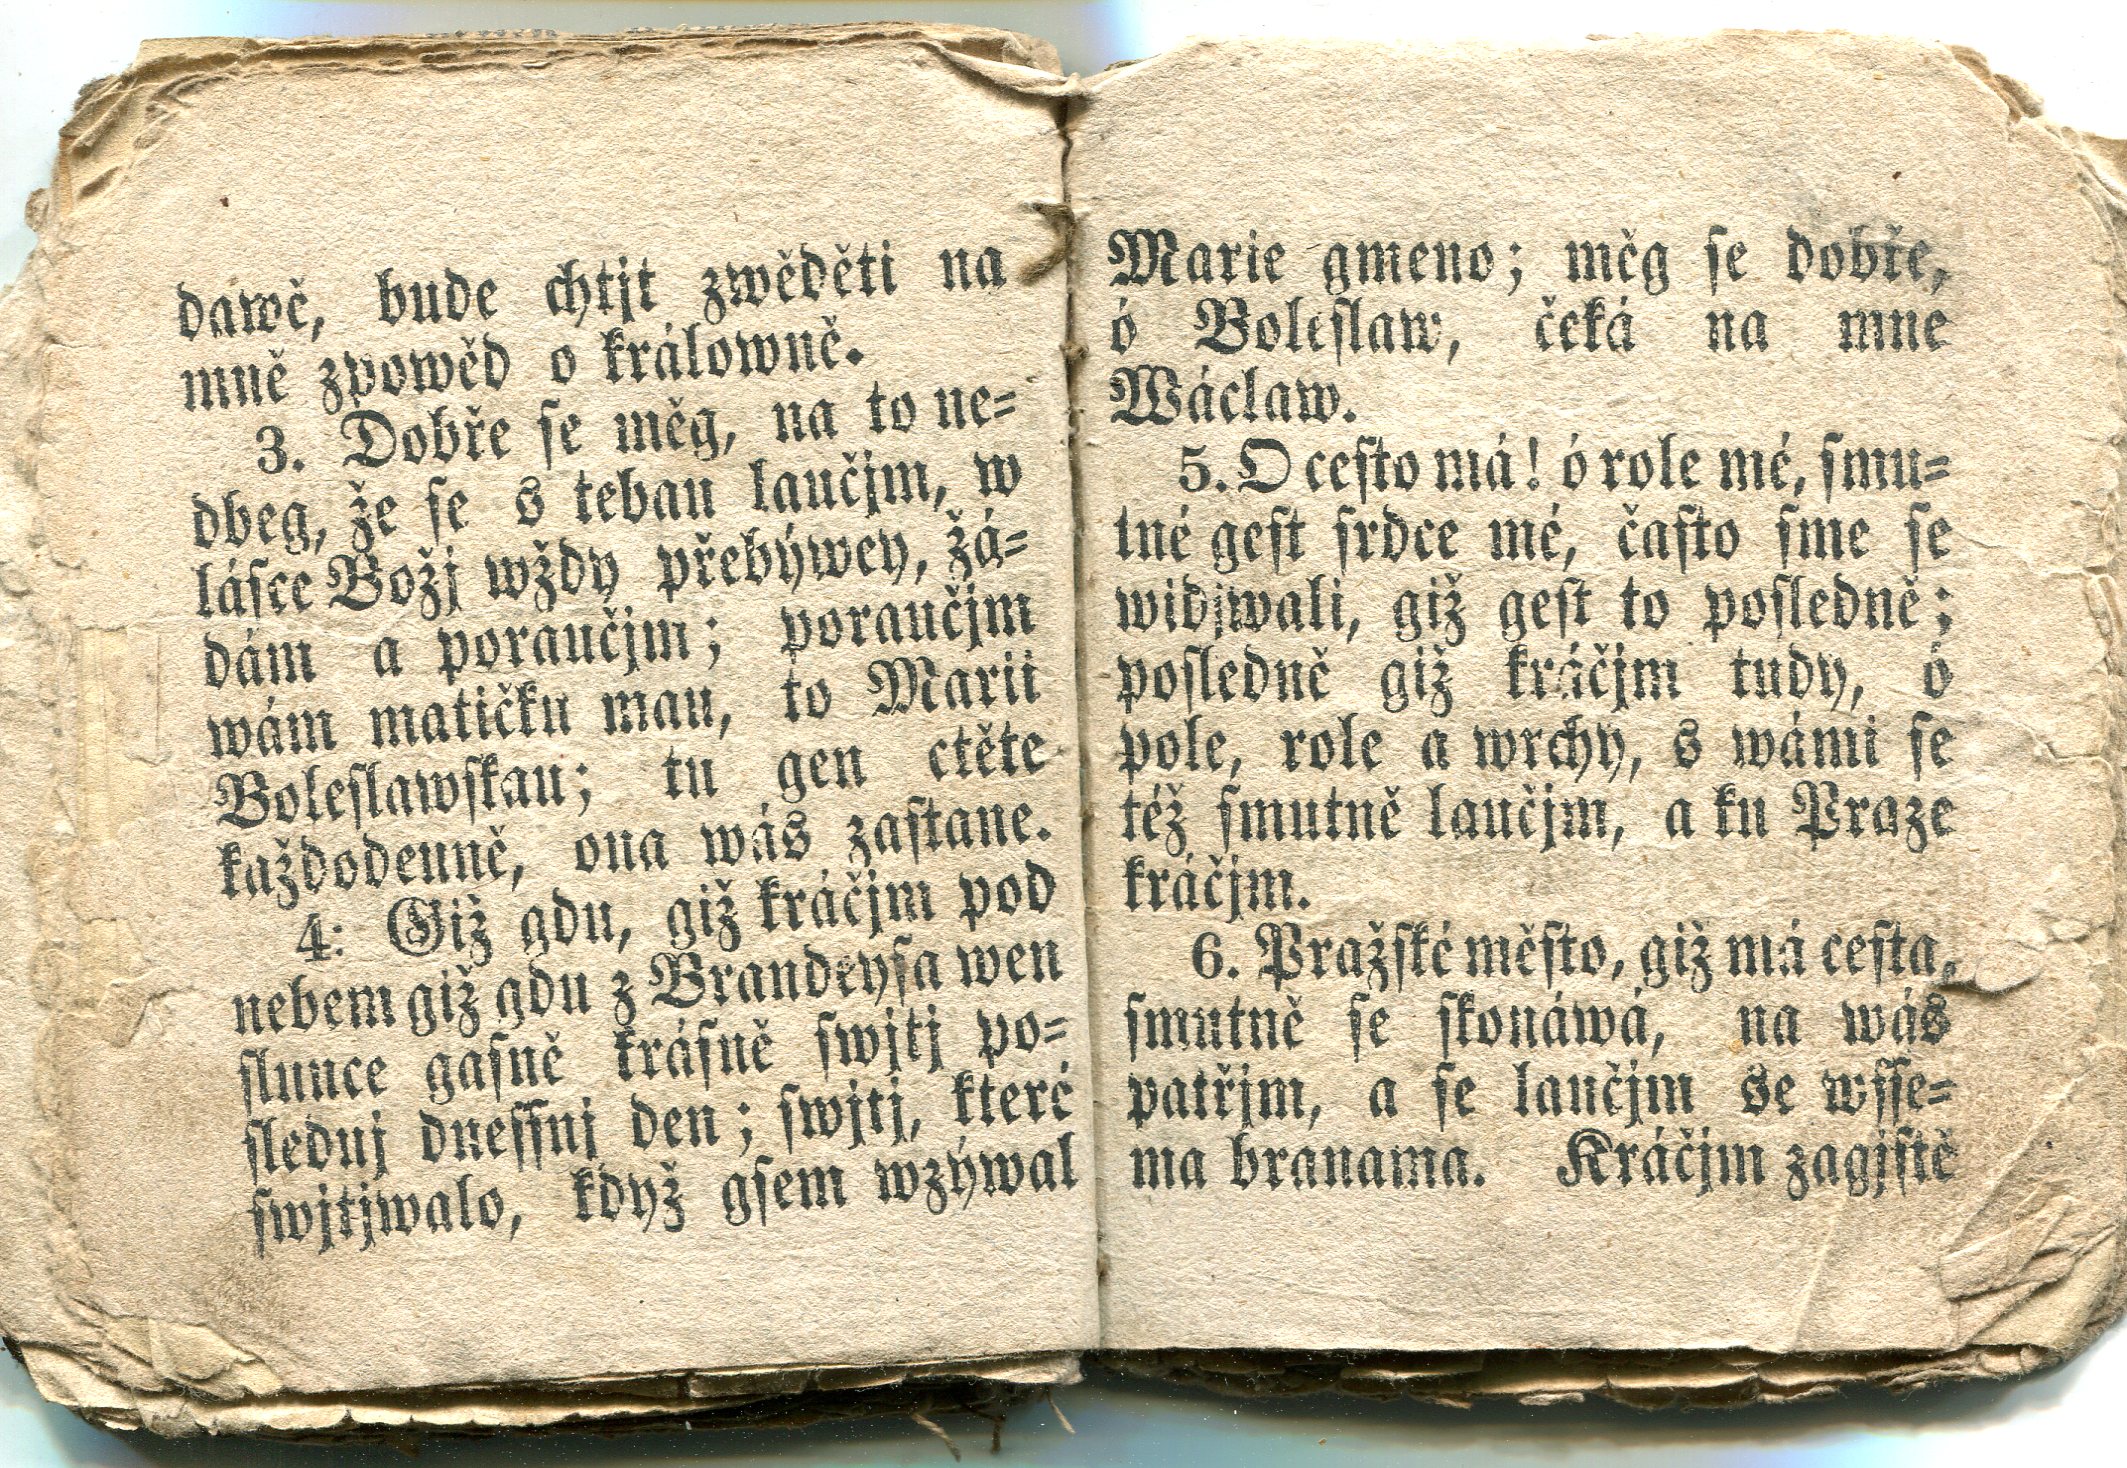 dawě, bude chtjt zwěděti na
mně zpowěd o králowně.
3. Dobře se měg, na to ne=
dbeg, že se s tebau laučjm, w
lásce Božj wždy přebýwey, žá=
dám a poraučjm; poraučjm
wám matičku mau, to Marii
Boleslawskau; tu gen ctěte
každodenně, ona wás zastane.
4: Giž gdu, giž kráčjm pod
nebem giž gdu z Brandeysa wen
slunce gasně krásně swjtj po=
slednj dnessnj den; swjtj, které
swjtjwalo, když gsem wzýwal
Marie gmeno; měg se dobře,
ó Boleslaw, čeká na mne
Wáclaw.
5. O cesto má! ó role mé, smu=
tné gest srdce mé, často sme se
widjwali, giž gest to posledně;
posledně giž kráčjm tudy, ó
pole, role a wrchy, s wámi se
též smutně laučjm, a ku Praze
kráčjm.
6. Pražské město, giž má cesta,
smutně se skonáwá, na wás
patřjm, a se laučjm se wsse=
ma branama. Kráčjm zagjstě